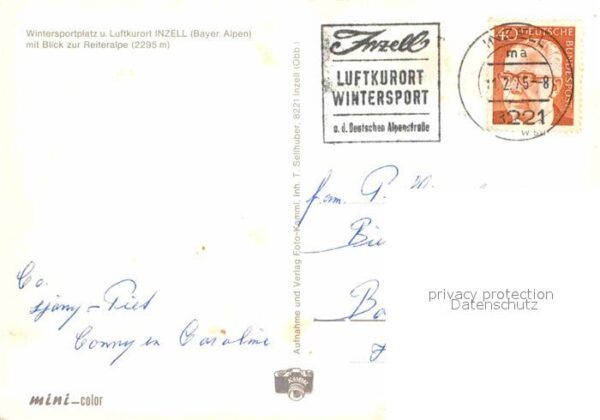 Wintersportplatz u. Luftkurort INZELL (Bayer. Alpen)
mit Blick zur Reiteralpe (2295 m)
Inzell
LUFTKURORT
WINTERSPORT
a. d. Deutschen Alpenstraße
INZELL
ma
11.2.75-8
8221
40
DEUTSCHE BUNDESPOST
Aufnahme und Verlag Foto-Kamml, Inh. T. Sellhuber, 8221 Inzell (Obb.)
fam. P.
Bi
Ba
privacy protection
Datenschutz
Co.
sjany - Piet
Conny en Caroline
KAMML
mini-color